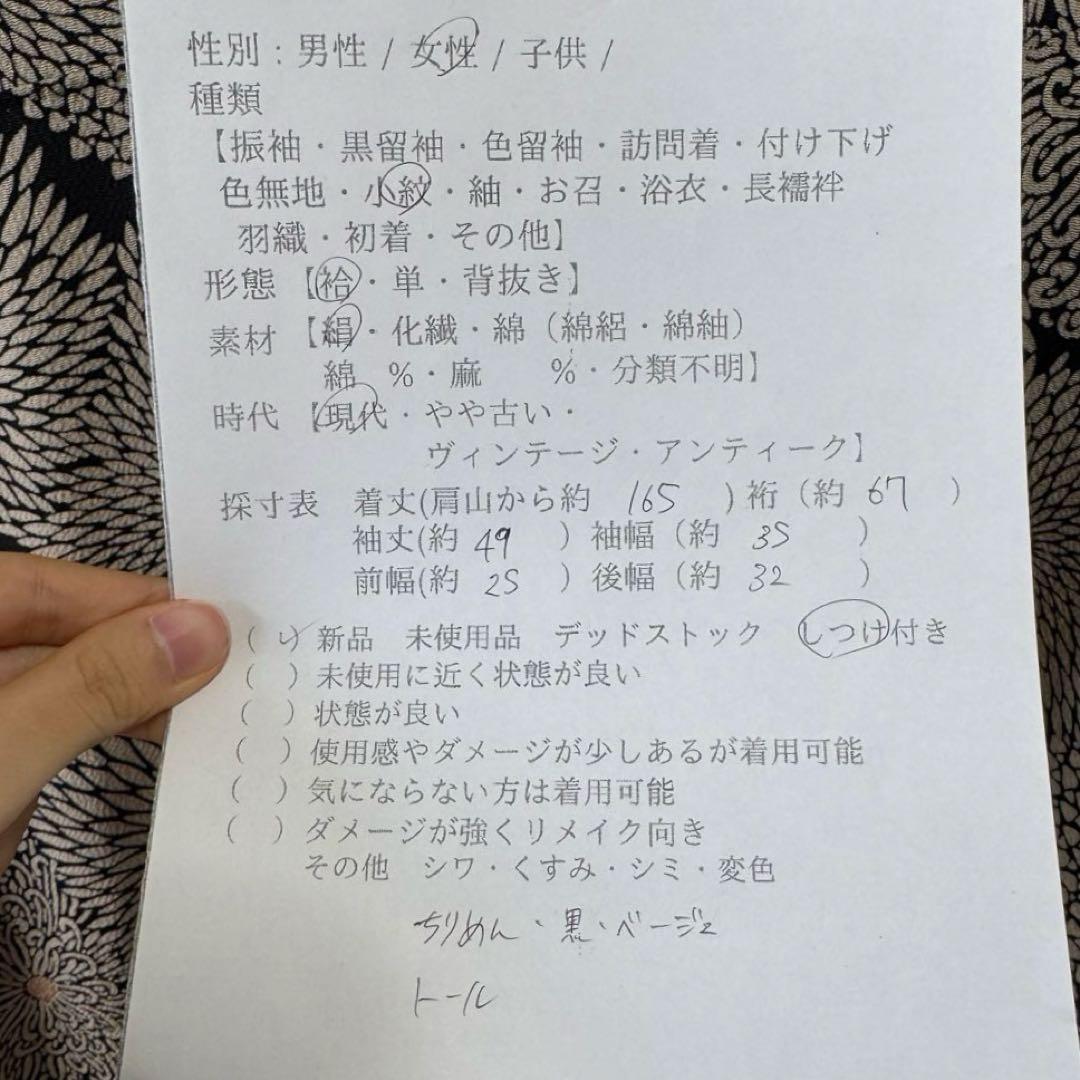 性別：男性 / 女性 / 子供 /
種類
【振袖・黒留袖・色留袖・訪問着・付け下げ
色無地・小紋・紬・お召・浴衣・長襦袢
羽織・初着・その他】
形態 【袷・単・背抜き】
素材 【絹・化繊・綿（綿絽・綿紬）
綿 %・麻 %・分類不明】
時代 【現代・やや古い・
ヴィンテージ・アンティーク】
採寸表 着丈(肩山から約 165 ) 裄（約 67 ）
袖丈(約 49 ）袖幅（約 35 ）
前幅(約 25 ）後幅（約 32 ）
（ レ ）新品 未使用品 デッドストック しつけ付き
（ ）未使用に近く状態が良い
（ ）状態が良い
（ ）使用感やダメージが少しあるが着用可能
（ ）気にならない方は着用可能
（ ）ダメージが強くリメイク向き
その他 シワ・くすみ・シミ・変色
ちりめん・黒・ベージュ
トール